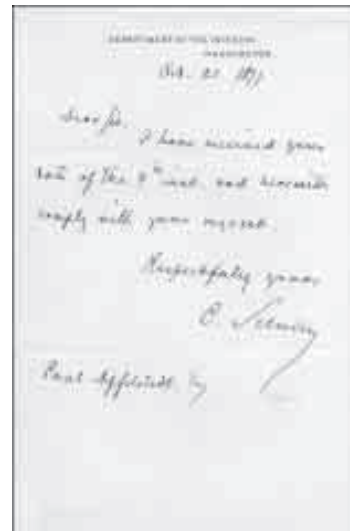 DEPARTMENT OF THE INTERIOR
WASHINGTON
Dear Sir,
I have received your
note of the 9th inst. and herewith
comply with your request.
Respectfully yours
C. Schurz
Paul